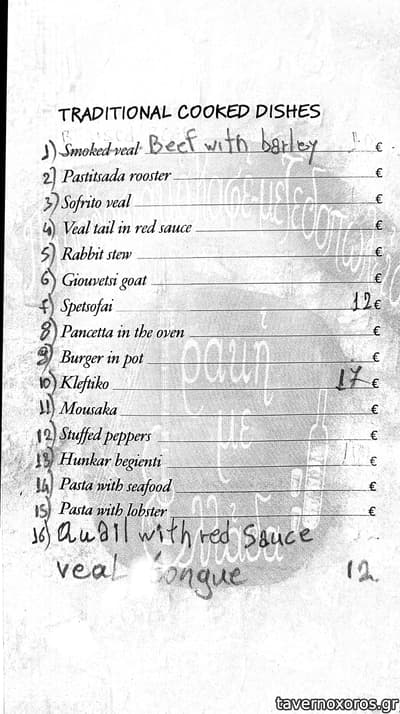 TRADITIONAL COOKED DISHES
1) Smoked veal Beef with barley €
2) Pastitsada rooster €
3) Sofrito veal €
4) Veal tail in red sauce €
5) Rabbit stew €
6) Giouvetsi goat €
7) Spetsofai 12 €
8) Pancetta in the oven €
9) Burger in pot €
10) Kleftiko 17 €
11) Mousaka €
12) Stuffed peppers €
13) Hunkar begienti €
14) Pasta with seafood €
15) Pasta with lobster €
16) Quail with red sauce
veal tongue 12
ρακή
με
tavernoxoros.gr